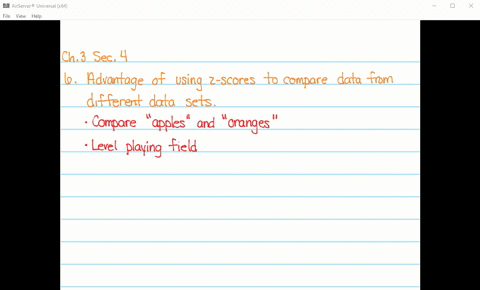 AirServer® Universal (x64)
File View Help
Ch.3 Sec. 4
6. Advantage of using z-scores to compare data from
different data sets.
• Compare "apples" and "oranges"
• Level playing field